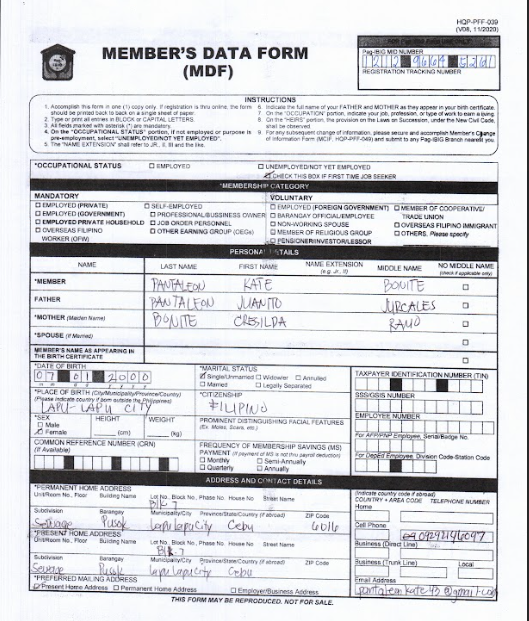 HQP-PFF-039
(V08, 11/2020)
MEMBER'S DATA FORM
(MDF)
Pag-IBIG MID NUMBER
REGISTRATION TRACKING NUMBER
INSTRUCTIONS
1. Accomplish this form in one (1) copy only. If registration is thru online, the form should be printed back to back on a single sheet of paper.
2. Type or print all entries in BLOCK or CAPITAL LETTERS.
3. All fields marked with asterisk (*) are mandatory.
4. On the "OCCUPATIONAL STATUS" portion, if not employed or purpose is pre-employment, select "UNEMPLOYED/NOT YET EMPLOYED".
5. The "NAME EXTENSION" shall refer to JR., II, III and the like.
6. Indicate the full name of your FATHER and MOTHER as they appear in your birth certificate.
7. On the "OCCUPATION" portion, indicate your job, profession, or type of work to earn a living.
8. On the "HEIRS" portion, the provision on the Laws on Succession, under the New Civil Code, shall be observed
9. For any subsequent change of information, please secure and accomplish Member's Change of Information Form (MCIF, HQP-PFF-049) and submit to any Pag-IBIG Branch nearest you.
*OCCUPATIONAL STATUS
EMPLOYED
UNEMPLOYED/NOT YET EMPLOYED
CHECK THIS BOX IF FIRST TIME JOB SEEKER
*MEMBERSHIP CATEGORY
MANDATORY
VOLUNTARY
EMPLOYED (PRIVATE)
SELF-EMPLOYED
EMPLOYED (FOREIGN GOVERNMENT)
MEMBER OF COOPERATIVE/ TRADE UNION
EMPLOYED (GOVERNMENT)
PROFESSIONAL/BUSINESS OWNER
BARANGAY OFFICIAL/EMPLOYEE
EMPLOYED PRIVATE HOUSEHOLD
JOB ORDER PERSONNEL
NON-WORKING SPOUSE
OVERSEAS FILIPINO IMMIGRANT
OVERSEAS FILIPINO WORKER (OFW)
OTHER EARNING GROUP (OEGs)
MEMBER OF RELIGIOUS GROUP
OTHERS, Please specify
PENSIONER/INVESTOR/LESSOR
PERSONAL DETAILS
NAME
LAST NAME
FIRST NAME
NAME EXTENSION
(e.g. Jr., II)
MIDDLE NAME
NO MIDDLE NAME
(check if applicable only)
*MEMBER PANTALEON KATE BONITE
FATHER PANTALEON JUANITO
*MOTHER (Maiden Name) BONITE CRESILDA
*SPOUSE (If Married)
MEMBER'S NAME AS APPEARING IN THE BIRTH CERTIFICATE
*DATE OF BIRTH
07 01 2000
*MARITAL STATUS
Single/Unmarried Widower Annulled
Married Legally Separated
TAXPAYER IDENTIFICATION NUMBER (TIN)
*PLACE OF BIRTH (City/Municipality/Province/Country)
(Please indicate country if born outside the Philippines)
LAPU-LAPU CITY
*CITIZENSHIP
FILIPINO
SSS/GSIS NUMBER
*SEX
Male
Female
HEIGHT
(cm)
WEIGHT
(kg)
PROMINENT DISTINGUISHING FACIAL FEATURES
(Ex. Moles, Scars, etc.)
EMPLOYEE NUMBER
For AFP/PNP Employee, Serial/Badge No.
COMMON REFERENCE NUMBER (CRN)
(If Available)
FREQUENCY OF MEMBERSHIP SAVINGS (MS) PAYMENT (If payment of MS is not thru payroll deduction)
Monthly Semi-Annually
Quarterly Annually
For DepEd Employee, Division Code-Station Code
ADDRESS AND CONTACT DETAILS
*PERMANENT HOME ADDRESS
Unit/Room No., Floor Building Name Lot No., Block No., Phase No. House No Street Name
Blk 7
Subdivision Barangay Municipality/City Province/State/Country (if abroad) ZIP Code
Pusok Lapu Lapu City Cebu 6016
*PRESENT HOME ADDRESS
Unit/Room No., Floor Building Name Lot No., Block No., Phase No. House No Street Name
Blk 7
Subdivision Barangay Municipality/City Province/State/Country (if abroad) ZIP Code
Pusok Lapu Lapu City Cebu
*PREFERRED MAILING ADDRESS
Present Home Address Permanent Home Address Employer/Business Address
(Indicate country code if abroad)
COUNTRY + AREA CODE TELEPHONE NUMBER
Home
Cell Phone
Business (Direct Line)
Business (Trunk Line) Local
Email Address
THIS FORM MAY BE REPRODUCED. NOT FOR SALE.